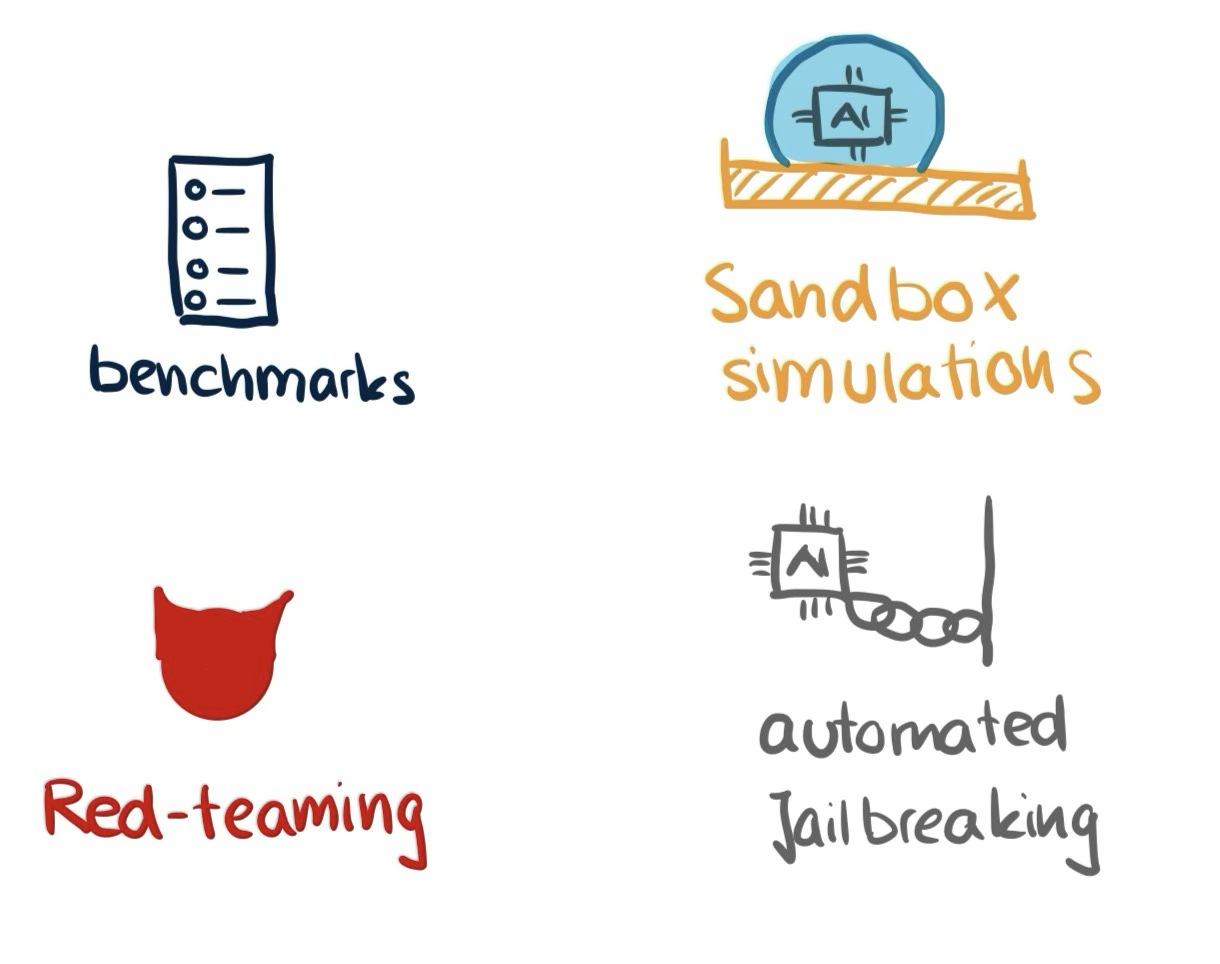 AI
benchmarks
Sandbox
simulations
AI
Red-teaming
automated
Jailbreaking